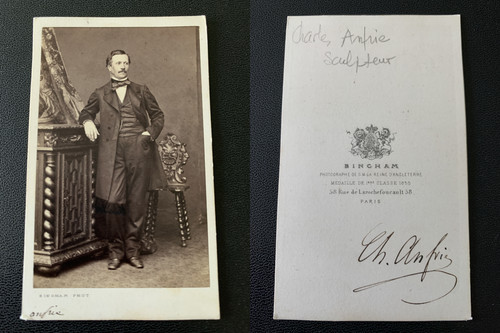 BINGHAM PHOT.
anfrie
Charles Anfrie
Sculpteur
BINGHAM
PHOTOGRAPHE DE S.M. LA REINE D'ANGLETERRE
MÉDAILLE DE 1ERE CLASSE 1855
58 Rue de Larochefoucault 58
PARIS
Ch. Anfrie